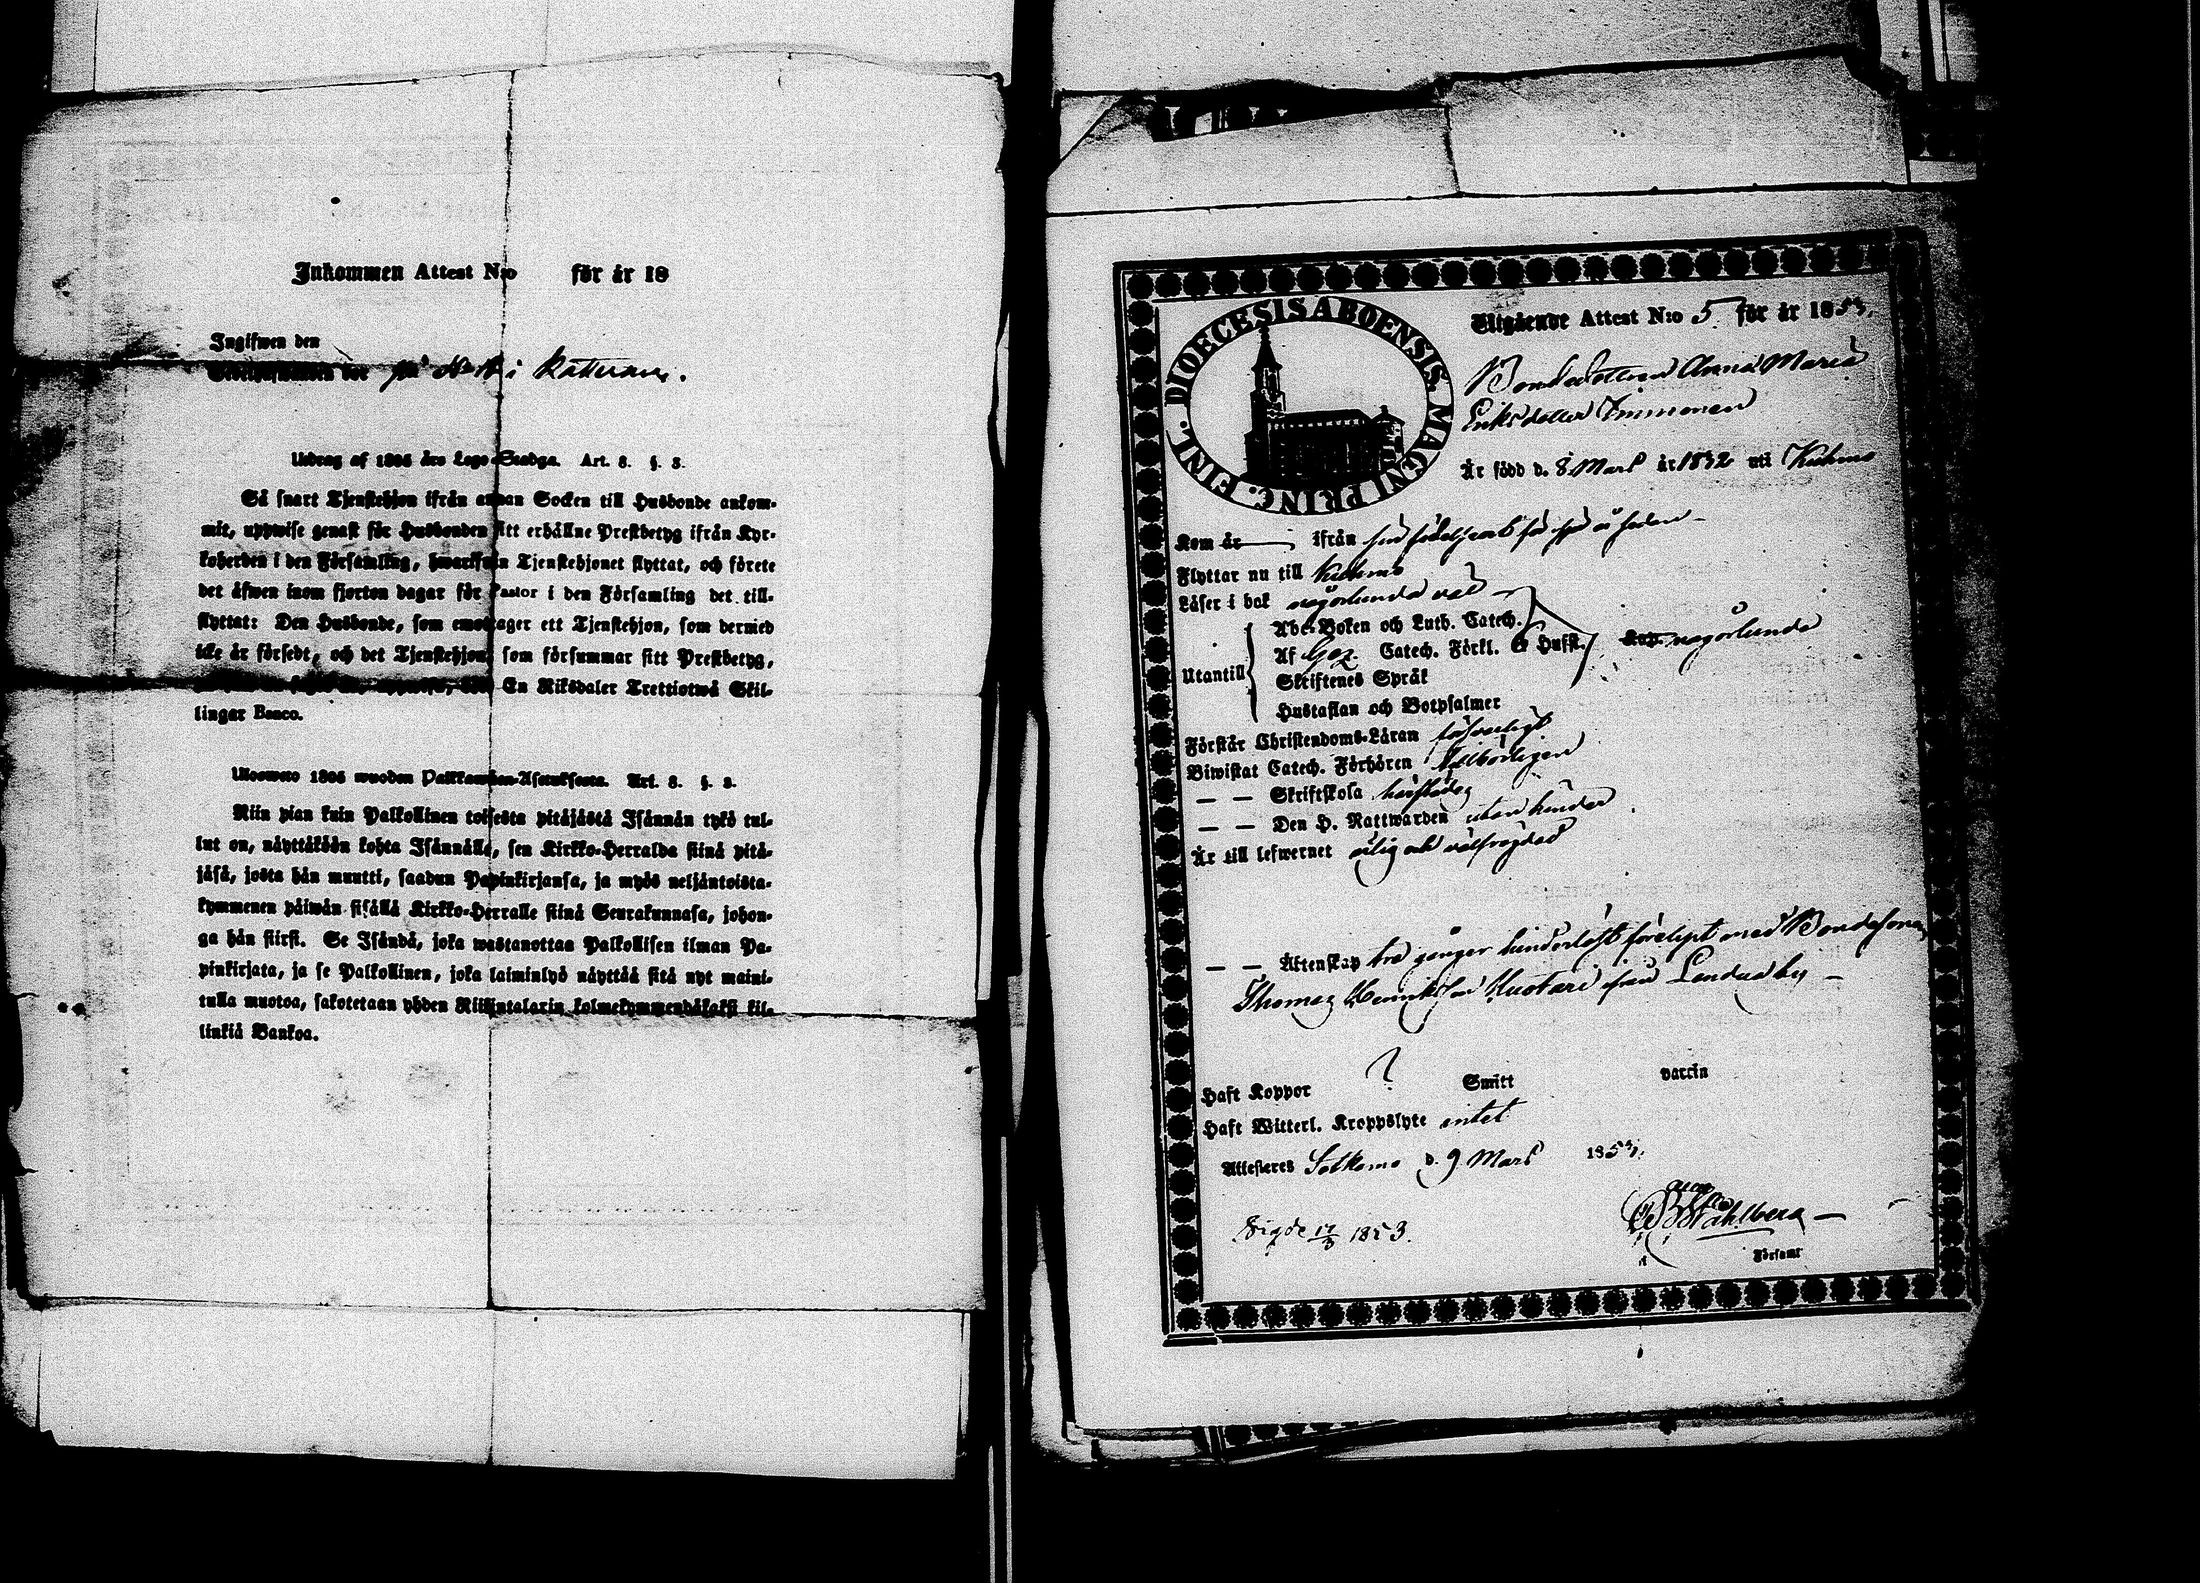 Inkommen Attest N:o för år 18
Ingifwen den
på N:o i
Utdrag af 1805 års Lego-Stadga. Art. 8. §. 3.
Så snart Tjenstehjon ifrån annan Socken till Husbonde ankom-
mit, uppwise genast för Husbonden sitt erhållne Prestbetyg ifrån Kyr-
koherden i den Församling, hwarifrån Tjenstehjonet flyttat, och förete
det äfwen inom fjorton dagar för Pastor i den Församling det till-
flyttat: Den Husbonde, som emottager ett Tjenstehjon, som dermed
icke är försedt, och det Tjenstehjon, som försummar sitt Prestbetyg,
En Riksdaler Trettiotwå Skil-
lingar Banco.
Ulosweto 1805 wuoden Palkkawäen-Asetuksesta. Art. 8. §. 3.
Niin pian kuin Palkollinen toisesta pitäjästä Isännän tykö tul-
lut on, näyttäköön kohta Isännälle, sen Kirkko-Herralda siinä pitä-
jäsä, josta hän muutti, saadun Papinkirjansa, ja myös neljäntoista-
kymmenen päiwän sisällä Kirkko-Herralle siinä Seurakunnasa, johon-
ga hän siirsi. Se Isändä, joka wastanottaa Palkollisen ilman Pa-
pinkirjata, ja se Palkollinen, joka laiminlyö näyttää sitä nyt maini-
tulla muotoa, sakotetaan yhden Riikintalarin kolmekymmendäkaksi kil-
linkiä Bankoa.
DIOECESIS ABOENSIS. MAGNI PRINC. FINL.
Utgående Attest N:o 5 för år 1853.
Bondedottren Anna Maria
Eriksdotter Immonen
Är född d. 8 Mars år 1832 uti Kuhmo
Kom år — ifrån sin
Flyttar nu till Kuhmo
Läser i bok någorlunda väl
Abc-Boken och Luth. Catech.
Af Gez. Catech. Förkl. & Hufst.
någorlunda
Utantill
Skriftenes Språk
Hustaflan och Botpsalmer
Förstår Christendoms-Läran försvarligt
Biwistat Catech. Förhören tillbörligen
— — Skriftskola härstädes
— — Den H. Nattwarden utan hinder
Är till lefwernet ärlig och välfrägdad
— — Äktenskap tre gånger hinderlöst förelyst med Bondesonen
Thomas Henriksson Kuotari ifrån Lendua by —
Haft Koppor ? Smitt vaccin
Haft Witterl. Kroppslyte intet
Attesteras Sotkamo d. 9 Mars 1853.
Vigde 17/3 1853.
Ståhlberg
Församl